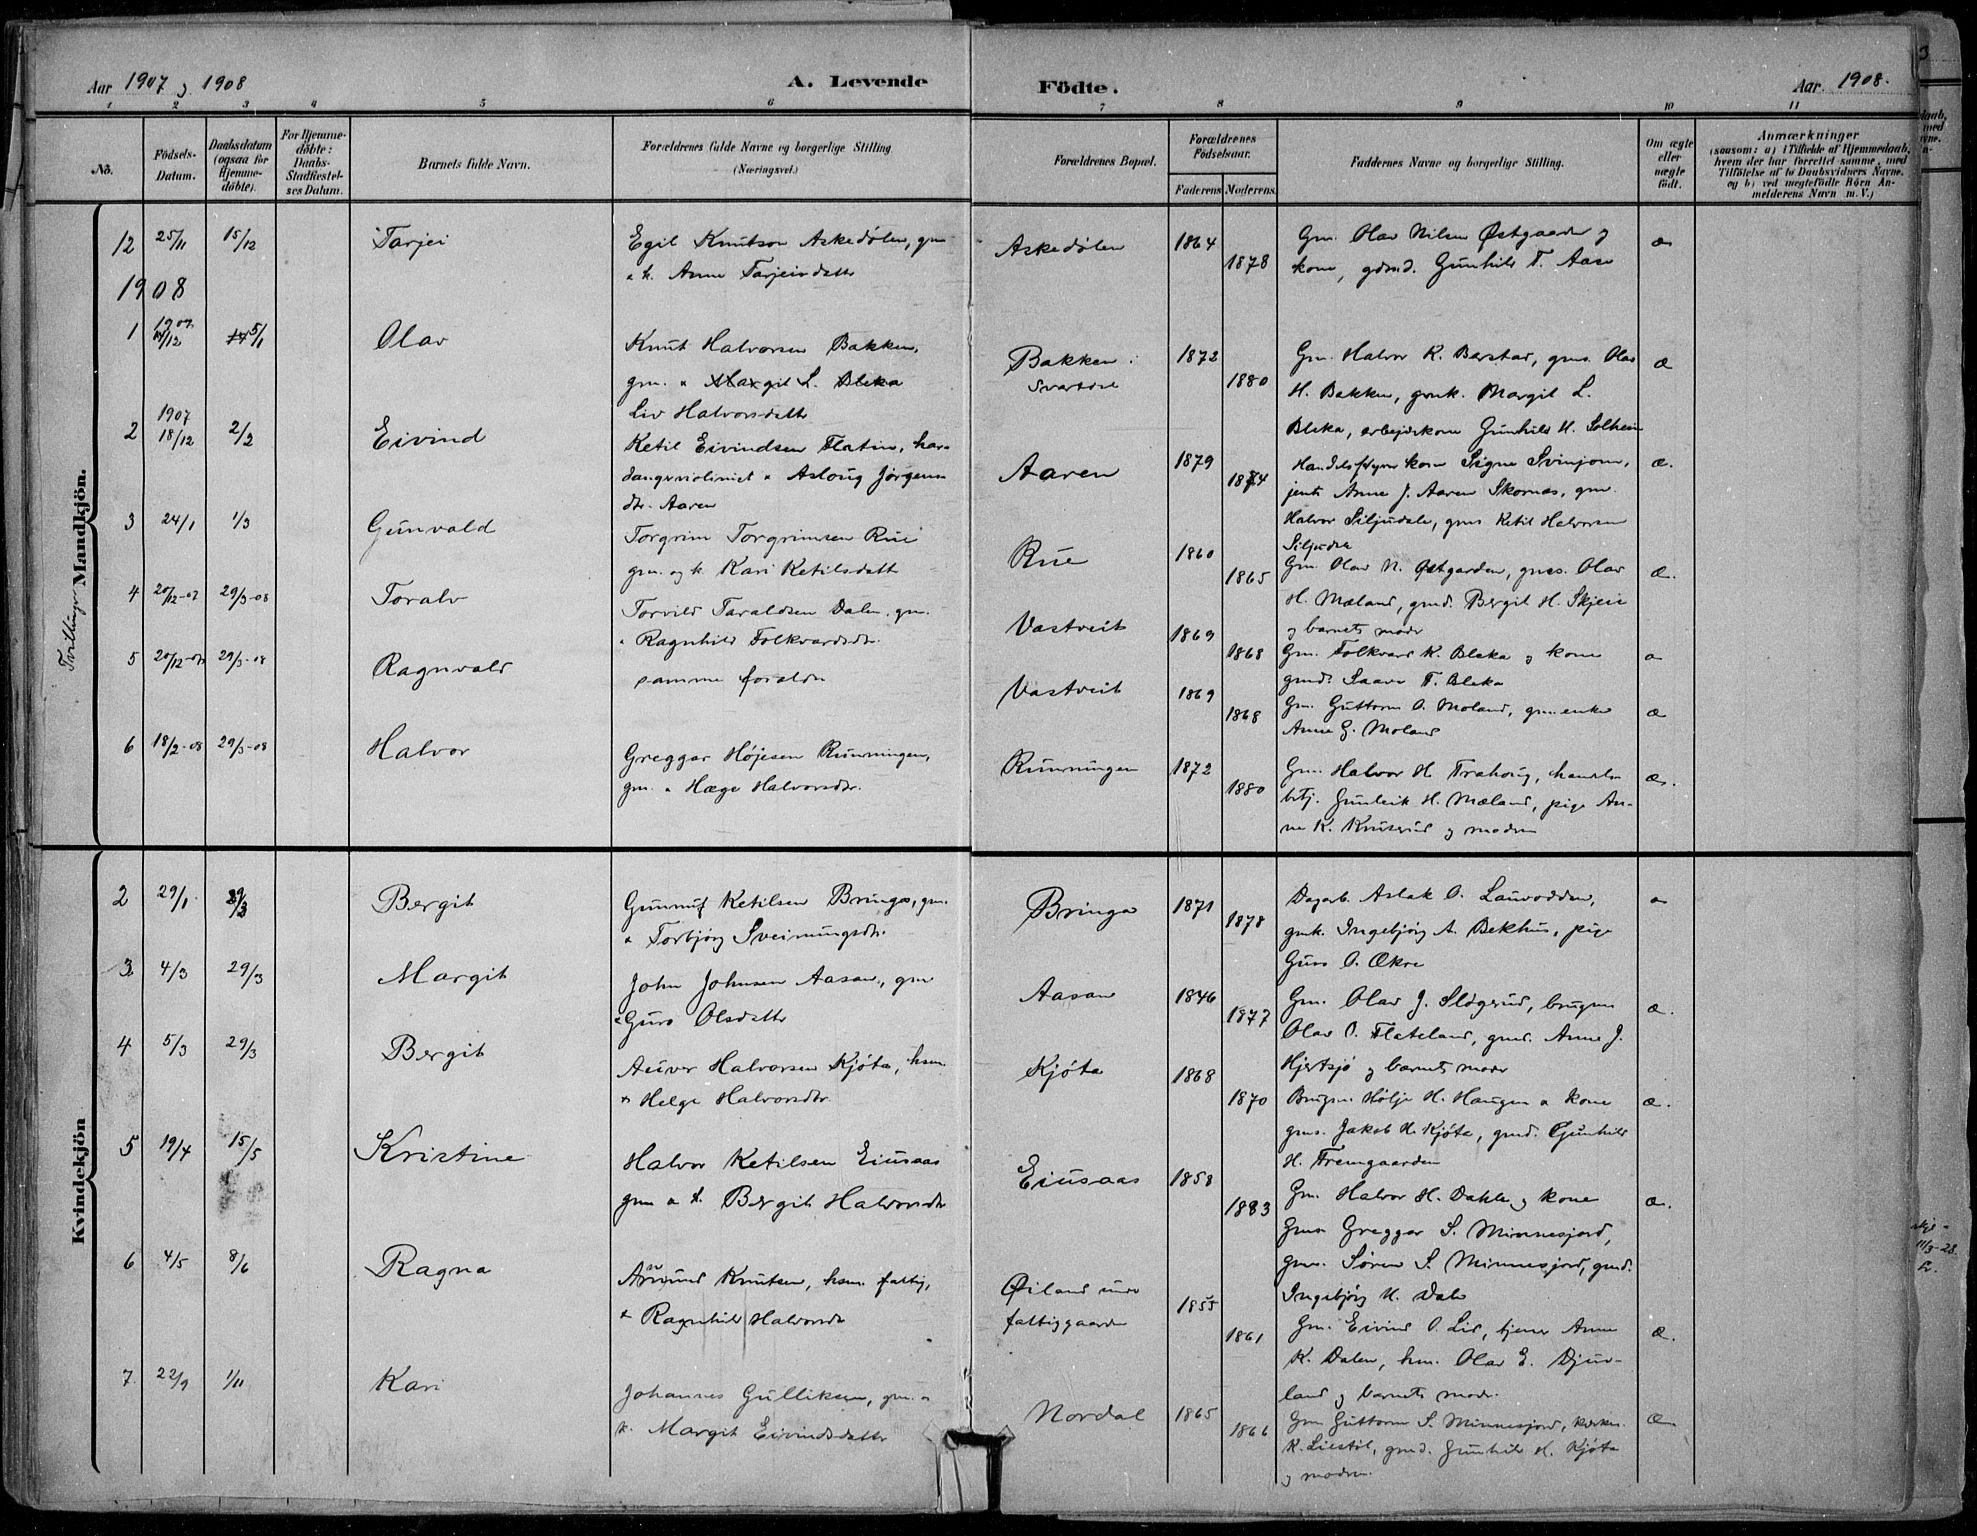 Aar 1907 og 1908
A. Levende
Födte.
Aar. 1908.
1 2 3 4 5 6 7 8 9 10 11
No.
Födsels-Datum.
Daabsdatum (ogsaa for Hjemme-döbte).
For Hjemme-döbte: Daabs-Stadfestel-ses Datum.
Barnets fulde Navn.
Forældrenes fulde Navne og borgerlige Stilling
(Næringsvei.)
Forældrenes Bopæl.
Forældrenes Födselsaar.
Faderens. Moderens.
Faddernes Navne og borgerlige Stilling.
Om ægte eller uægte födt.
Anmærkninger
(saasom: a) i Tilfælde af Hjemmedaab, hvem der har forrettet samme, med Tilföielse af to Daabsvidners Navne, og b) ved uægtefödte Börn An-melderens Navn m. V.)
Mandkjön.
12 25/11 15/12 Tarjei
Egil Knutson Askedølen, gm
& k. Anne Tarjeisdatter
Askedølen 1864 1878
Gm. Olav Nilsen Østgaarden og
kone, gdmd. Gunhild T. Aase
æ
1908
1 1907 12 5/1 Olav
Knut Halvorsen Bakken,
gm. & Margit L. Bleka
Liv Halvorsdatter
Bakken i Svartdal 1872 1880
Gm. Halvor K. Berstad, gms. Olav
H. Bakken, gmk. Margit L.
Bleka, arbejdskone Gunhild H. Solheim
æ
2 1907 18/12 2/2 Eivind
Ketil Eivindsen Flatin, har-
dangviolinist & Aslaug Jørgens
dtr. Aaren
Aaren 1879 1874
Handelsstyrer kone Signe Svinjom,
jente Anne J. Aaren Skornes, gm.
Halvor Siljudale, gms Ketil Halvorsen
Siljudal
æ.
3 24/1 1/3 Gunvald
Torgrim Torgrimsen Rue
gm. og k. Kari Ketilsdatter
Rue 1860 1865
Gm. Olav N. Østgarden, gms. Olav
H. Mæland, gmd. Bergit H. Skjeie
og barnets moder
æ.
Tvillinger
4 20/12-07 29/3-08 Toralv
Torvild Taraldsen Dalen, gm.
& Ragnhild Folkvardsdtr.
Vastveit 1869 1868
Gm. Folkvard K. Bleka og kone
gmd. Saave T. Bleka
æ
5 20/12-07 29/3-08 Ragnvald
samme foreldre
Vastveit 1869 1868
Gm. Guttorm O. Moland, gm.enke
Anne G. Moland
æ
6 18/2-08 29/3-08 Halvor
Greggar Højesen Runningen,
gm. & Hæge Halvorsdtr.
Runningen 1872 1880
Gm. Halvor H. Trahaug, handels
betj. Gunleik H. Mæland, pige An-
ne K. Knuserud og moderen
æ.
Kvindekjön
2 29/1 29/3 Bergit
Gunnuf Ketilsen Bringa, gm.
& Torbjørg Sveinungsdtr.
Bringa 1871 1878
Dagarb. Aslak O. Lauvodden,
gmk. Ingebjørg A. Bekhus, pige
Guro O. Økre
æ
3. 4/3 29/3 Margit
John Johnsen Aasan, gm
& Guro Olsdatter
Aasan 1846 1877
Gm. Olav J. Slogerud, brugsm
Olav O. Flateland, gmd. Anne J.
Hjertsjø og barnets moder
æ.
4 5/3 29/3 Bergit
Auver Halvorsen Kjøta, hsm.
& Helge Halvorsdtr.
Kjøta 1868 1870
Brugsm. Hølje H. Haugen & kone
gms. Jakob H. Kjøta, gmd. Gunhild
H. Fremgaarden
æ.
5 19/4 15/5 Kristine
Halvor Ketilsen Eiusaas
gm & k. Bergit Halvorsdtr
Eiusaas 1858 1883
Gm. Halvor H. Dahle og kone
Gmsn Greggar S. Minnesjord,
gms. Søren S. Minnesjord, gmd.
Ingebjørg H. Dale
æ.
6 4/5 8/6 Ragna
Amund Knutsen, hsm. fattig,
& Ragnhild Halvorsdtr
Øiland under fattiggaarden 1855 1861
Gm. Eivind O. Lid, tjener Anne
K. Dalen, hsm. Olav E. Djuv-
land og barnets moder.
æ.
7. 22/9 1/11 Kari
Johannes Gulliksen, gm. &
k. Margit Eivindsdatter
Nordal 1865 1866
Gm Guttorm S. Minnesjord,
K. Liestøl, gmd. Gunhild H. Kjøta
og moderen.
æ
11/3-28.